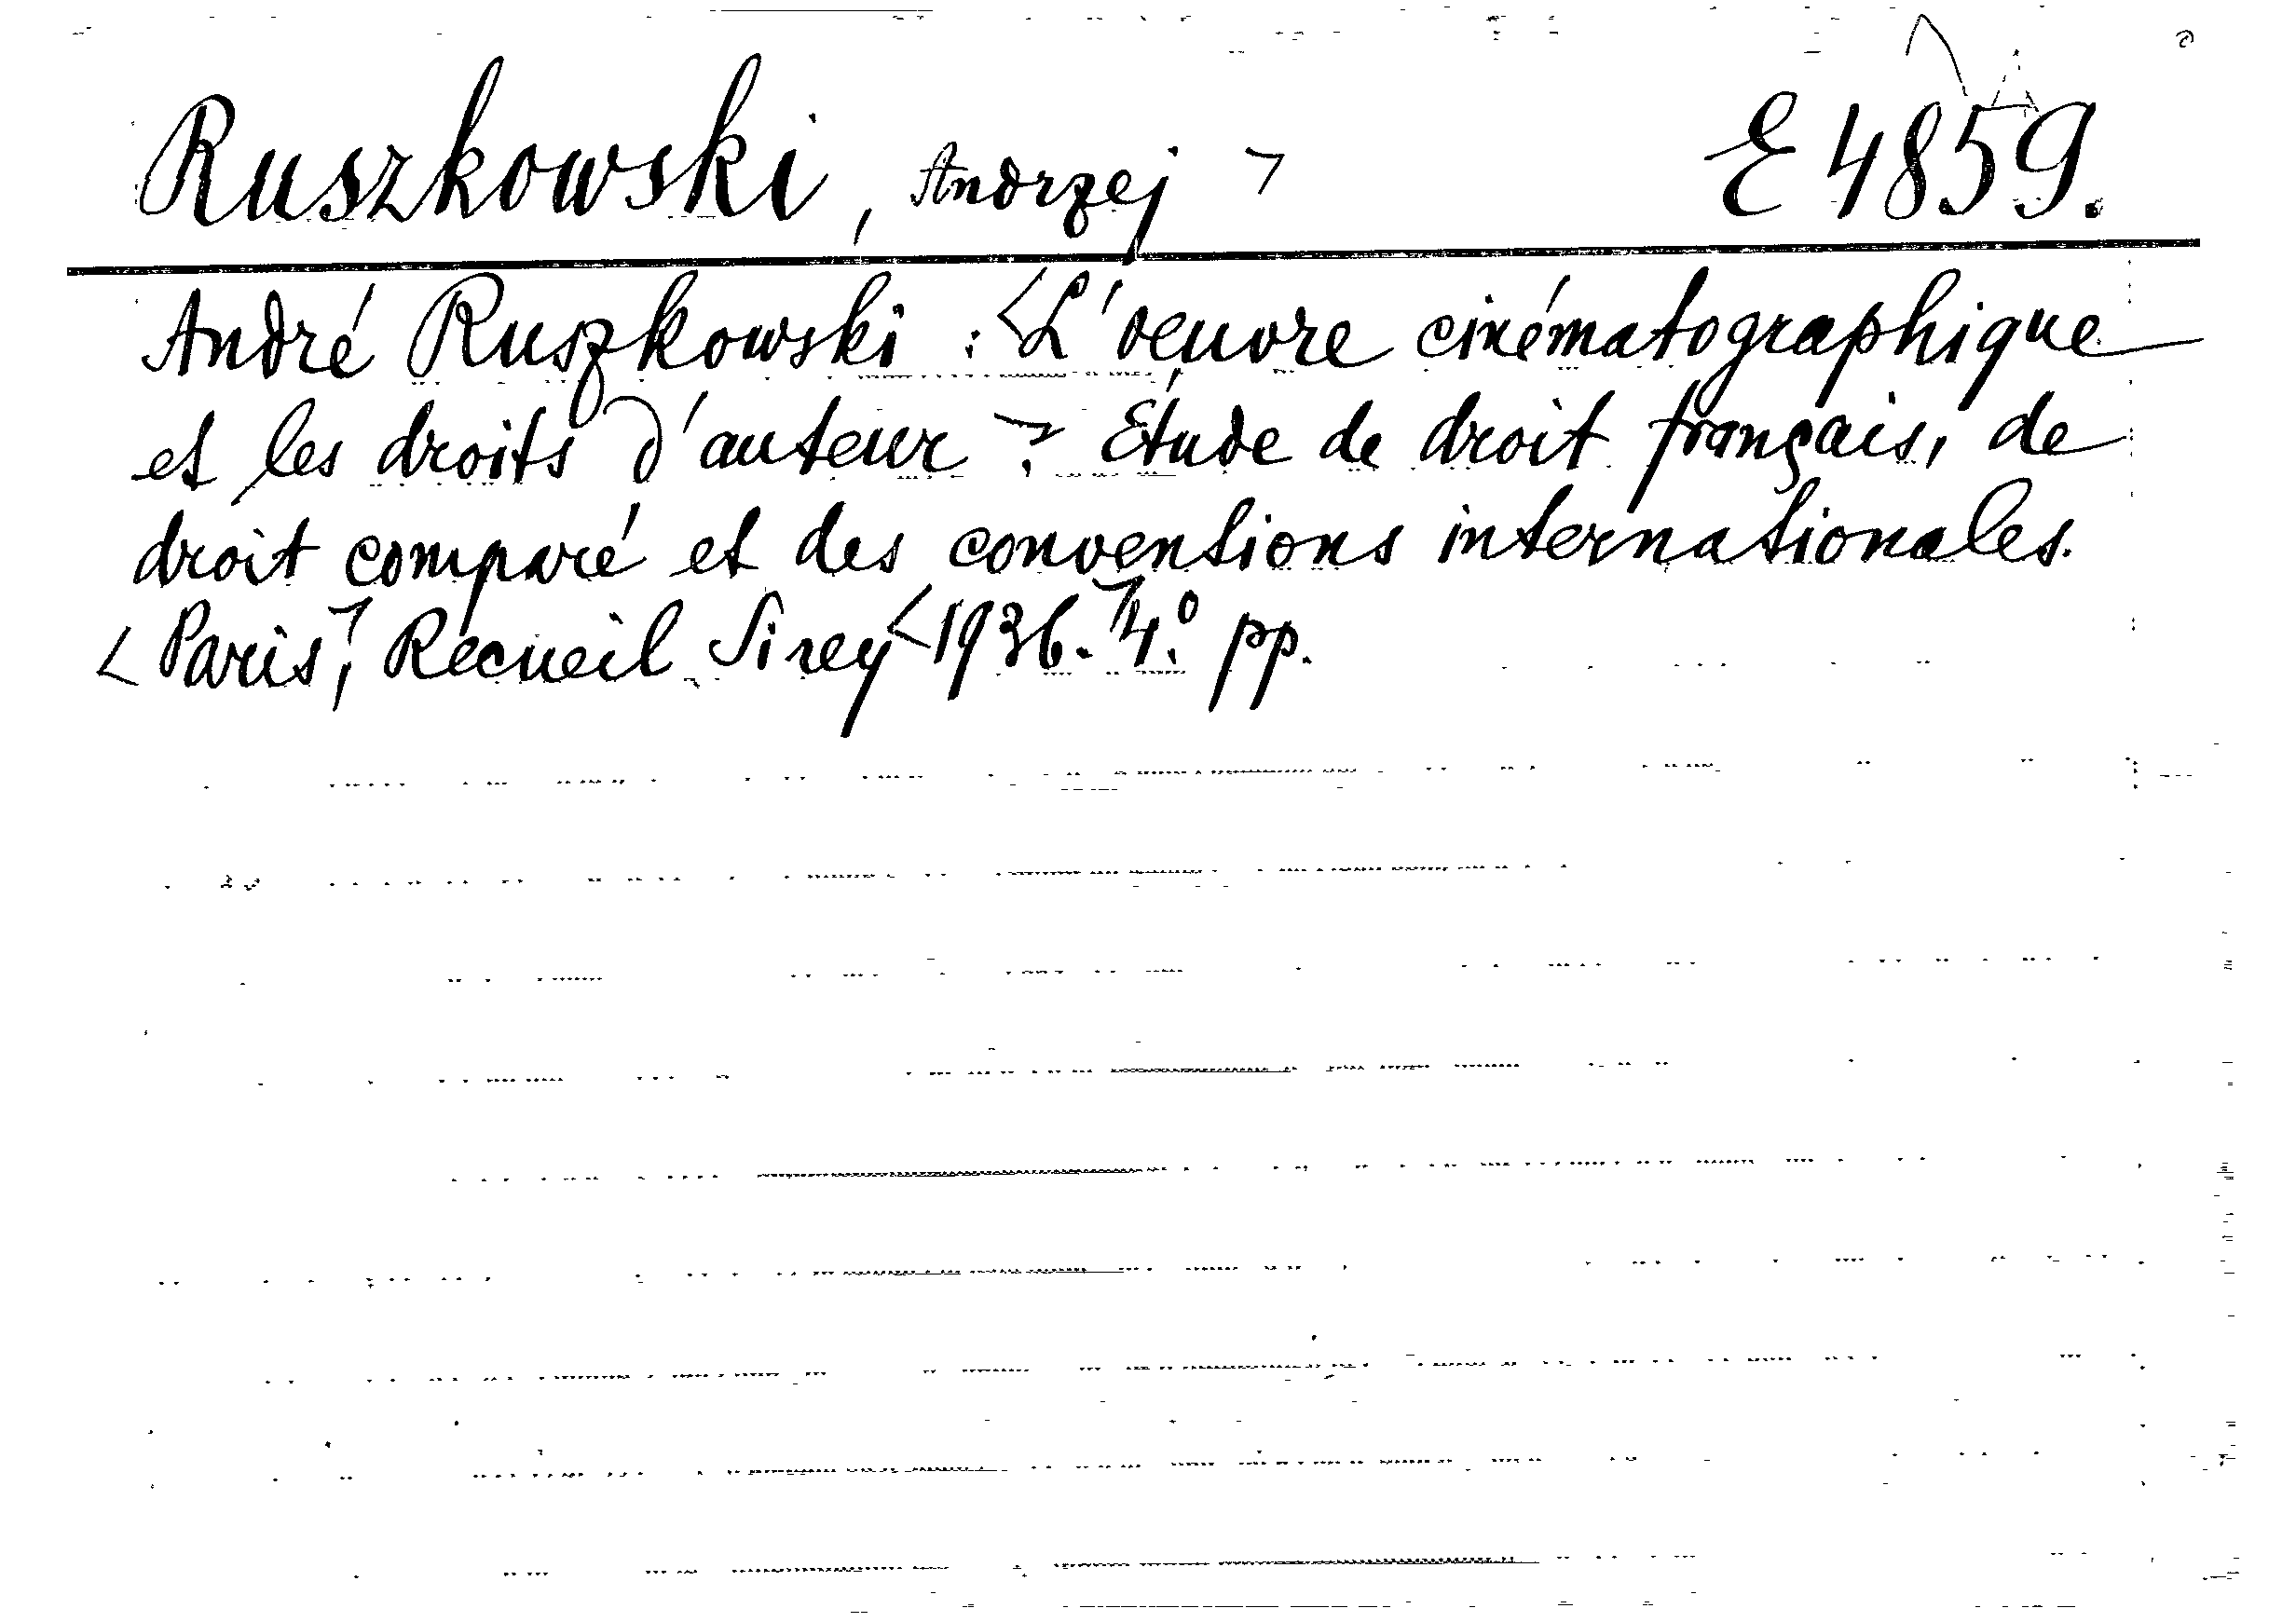 Ruszkowski, Andrzej > E 4859.
André Ruszkowski : <L'oeuvre cinématographique
et les droits d'auteur >. Étude de droit français, de
droit comparé et des conventions internationales.
<Paris>, Recueil Sirey <1936.> 4.° pp.